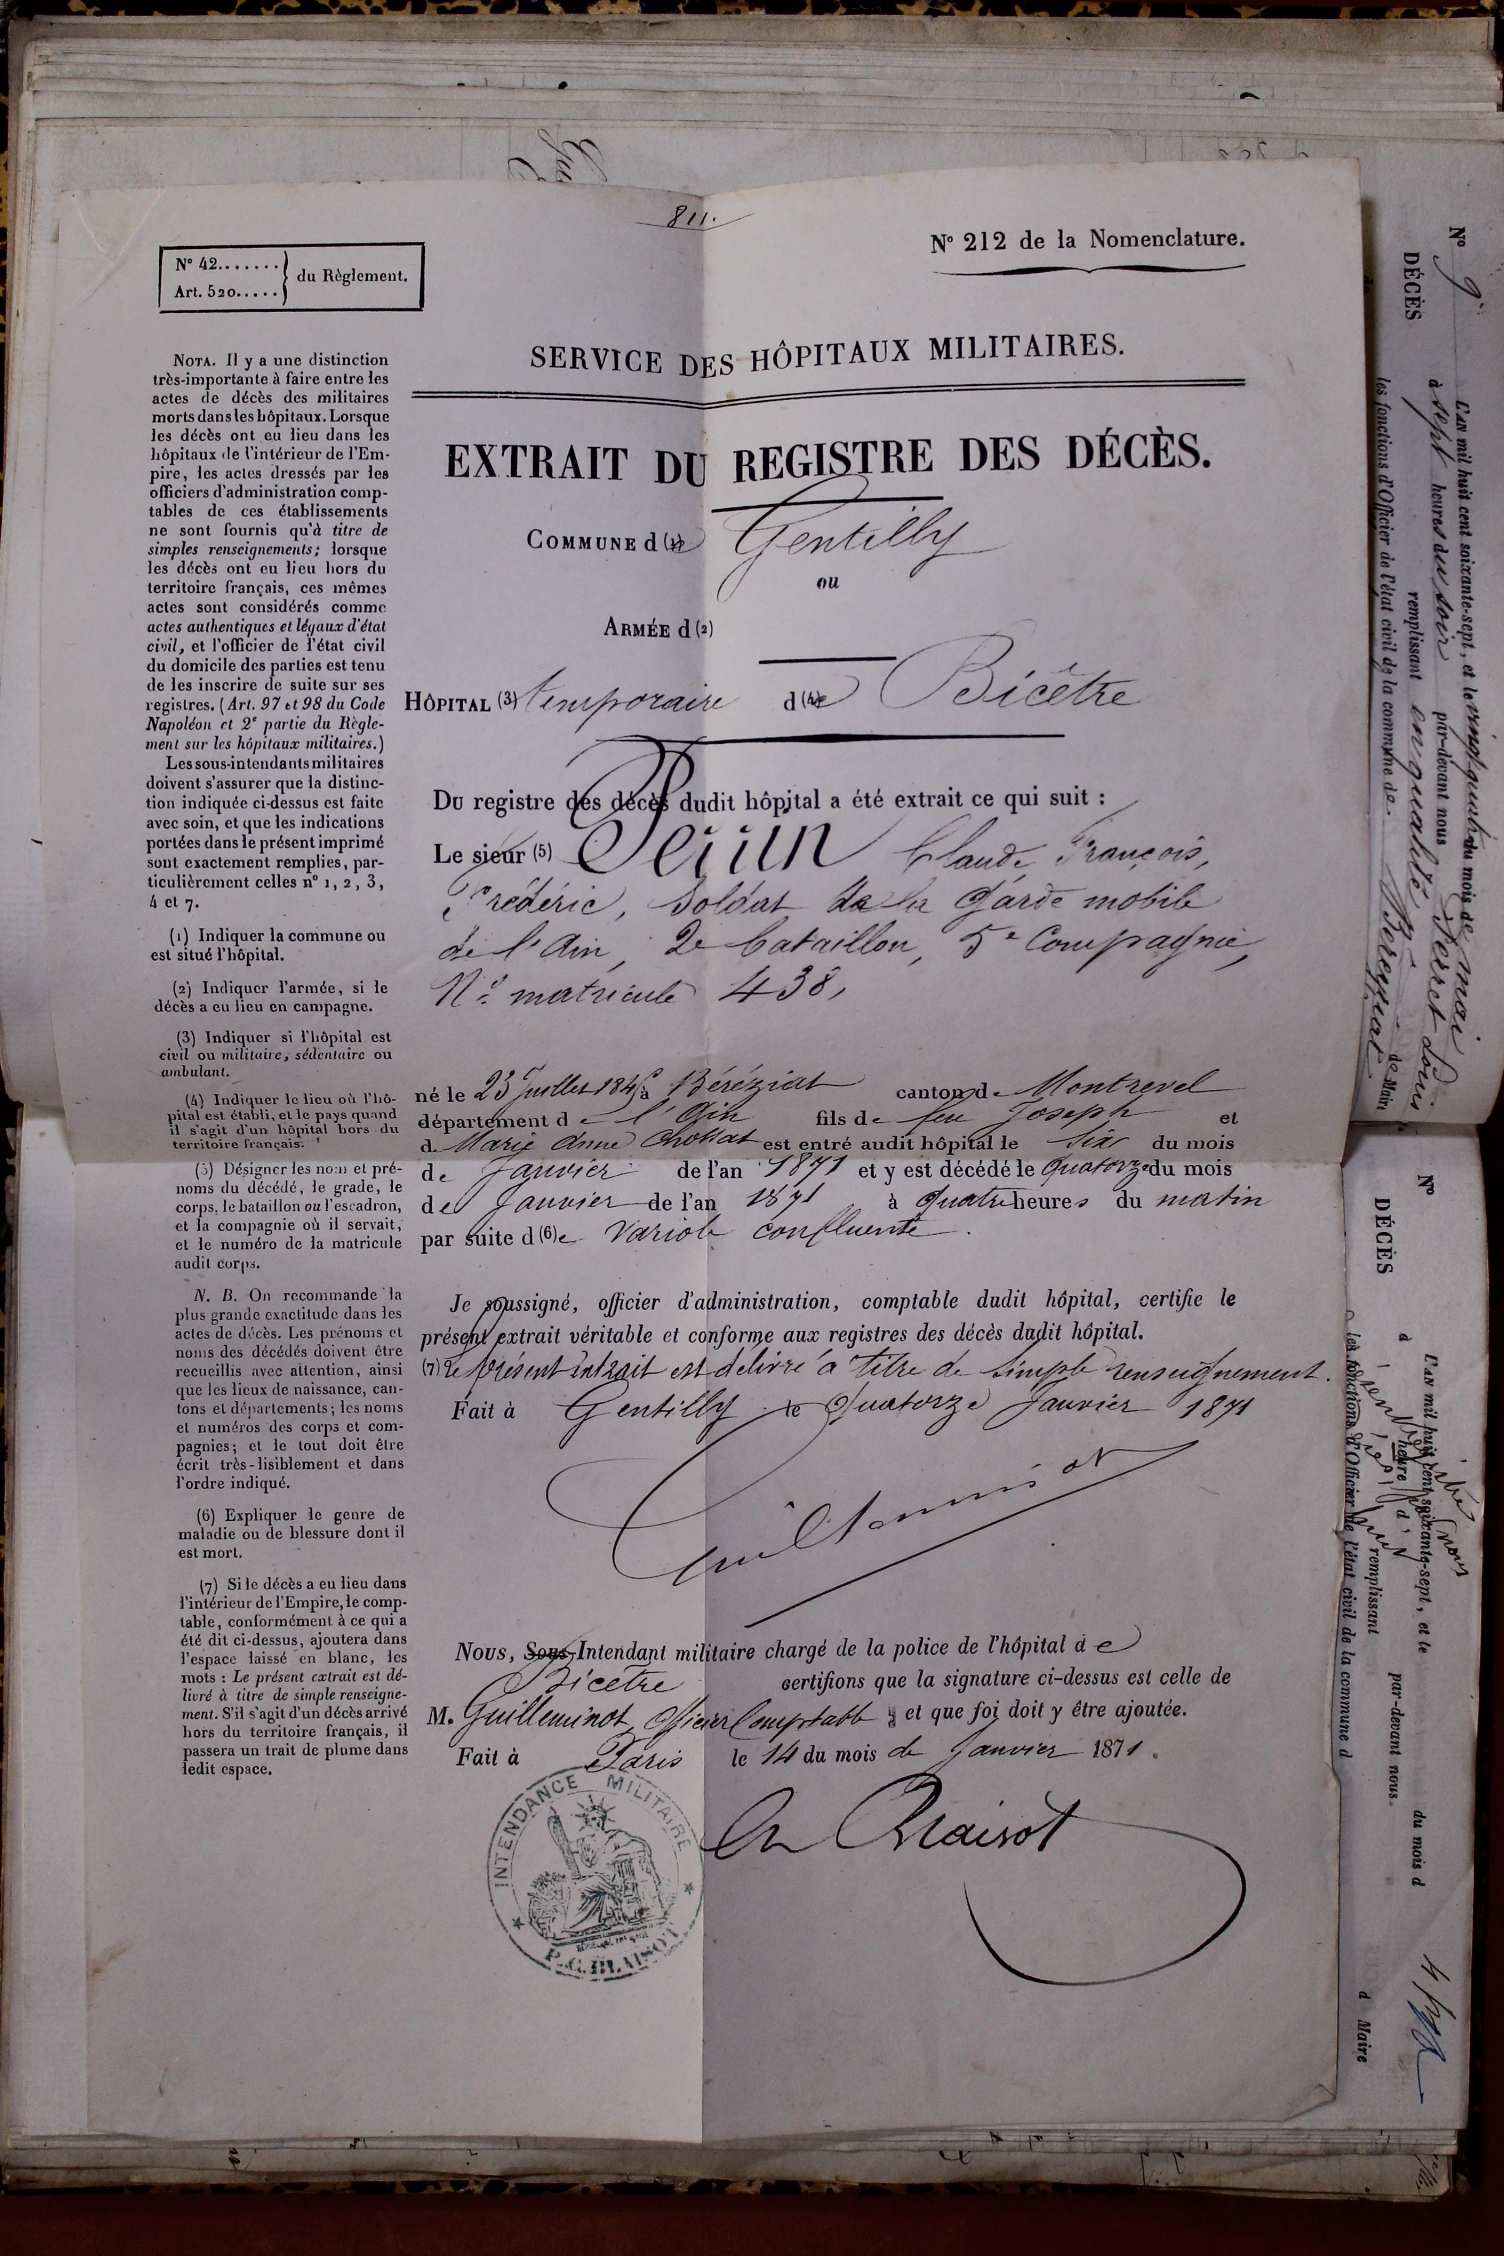 811.
N° 42.......
Art. 520.....
du Règlement.
N° 212 de la Nomenclature.
SERVICE DES HÔPITAUX MILITAIRES.
EXTRAIT DU REGISTRE DES DÉCÈS.
COMMUNE d (1) e Gentilly
ou
ARMÉE d (2)
HÔPITAL (3) temporaire d (4) e Bicêtre
Du registre des décès dudit hôpital a été extrait ce qui suit :
Le sieur (5) Claude, François,
Frédéric, soldat de la Garde mobile
de l'Ain, 2e bataillon, 5e Compagnie,
N° matricule 438,
né le 23 Juillet à Béréziat canton de Montrevel
département de l'Ain fils de feu Joseph et
d. Marie Anne Chossat est entré audit hôpital le six du mois
de Janvier de l'an 1871 et y est décédé le quatorze du mois
de Janvier de l'an 1871 à quatre heures du matin
par suite d (6) e variole confluente.
Je soussigné, officier d'administration, comptable dudit hôpital, certifie le
présent extrait véritable et conforme aux registres des décès dudit hôpital.
(7) Le présent extrait est délivré à titre de simple renseignement.
Fait à Gentilly le Quatorze Janvier 1871
Guilleminot
NOUS, Sous-Intendant militaire chargé de la police de l'hôpital d e
Bicêtre certifions que la signature ci-dessus est celle de
M. Guilleminot, Officier Comptable, et que foi doit y être ajoutée.
Fait à Paris le 14 du mois de Janvier 1871.
INTENDANCE MILITAIRE
P. C. BLAISOT
Blaisot
NOTA. Il y a une distinction
très-importante à faire entre les
actes de décès des militaires
morts dans les hôpitaux. Lorsque
les décès ont eu lieu dans les
hôpitaux de l'intérieur de l'Em-
pire, les actes dressés par les
officiers d'administration comp-
tables de ces établissements
ne sont fournis qu'à titre de
simples renseignements; lorsque
les décès ont eu lieu hors du
territoire français, ces mêmes
actes sont considérés comme
actes authentiques et légaux d'état
civil, et l'officier de l'état civil
du domicile des parties est tenu
de les inscrire de suite sur ses
registres. (Art. 97 et 98 du Code
Napoléon et 2e partie du Règle-
ment sur les hôpitaux militaires.)
Les sous-intendants militaires
doivent s'assurer que la distinc-
tion indiquée ci-dessus est faite
avec soin, et que les indications
portées dans le présent imprimé
sont exactement remplies, par-
ticulièrement celles n° 1, 2, 3,
4 et 7.
(1) Indiquer la commune ou
est situé l'hôpital.
(2) Indiquer l'armée, si le
décès a eu lieu en campagne.
(3) Indiquer si l'hôpital est
civil ou militaire, sédentaire ou
ambulant.
(4) Indiquer le lieu où l'hô-
pital est établi, et le pays quand
il s'agit d'un hôpital hors du
territoire français.
(5) Désigner les nom et pré-
noms du décédé, le grade, le
corps, le bataillon ou l'escadron,
et la compagnie où il servait,
et le numéro de la matricule
audit corps.
N. B. On recommande la
plus grande exactitude dans les
actes de décès. Les prénoms et
noms des décédés doivent être
recueillis avec attention, ainsi
que les lieux de naissance, can-
tons et départements; les noms
et numéros des corps et com-
pagnies; et le tout doit être
écrit très-lisiblement et dans
l'ordre indiqué.
(6) Expliquer le genre de
maladie ou de blessure dont il
est mort.
(7) Si le décès a eu lieu dans
l'intérieur de l'Empire, le comp-
table, conformément à ce qui a
été dit ci-dessus, ajoutera dans
l'espace laissé en blanc, les
mots : Le présent extrait est dé-
livré à titre de simple renseigne-
ment. S'il s'agit d'un décès arrivé
hors du territoire français, il
passera un trait de plume dans
ledit espace.
N° 9
DÉCÈS
L'AN mil huit cent soixante-sept, et le vingt quatre du mois de mai
à sept heures du soir par-devant nous Perret Louis
remplissant en qualité de Maire
les fonctions d'Officier de l'état civil de la commune de Béréziat
N°
DÉCÈS
L'AN mil huit cent soixante-sept, et le du mois d
à heure d par-devant nous
remplissant d Maire
les fonctions d'Officier de l'état civil de la commune d